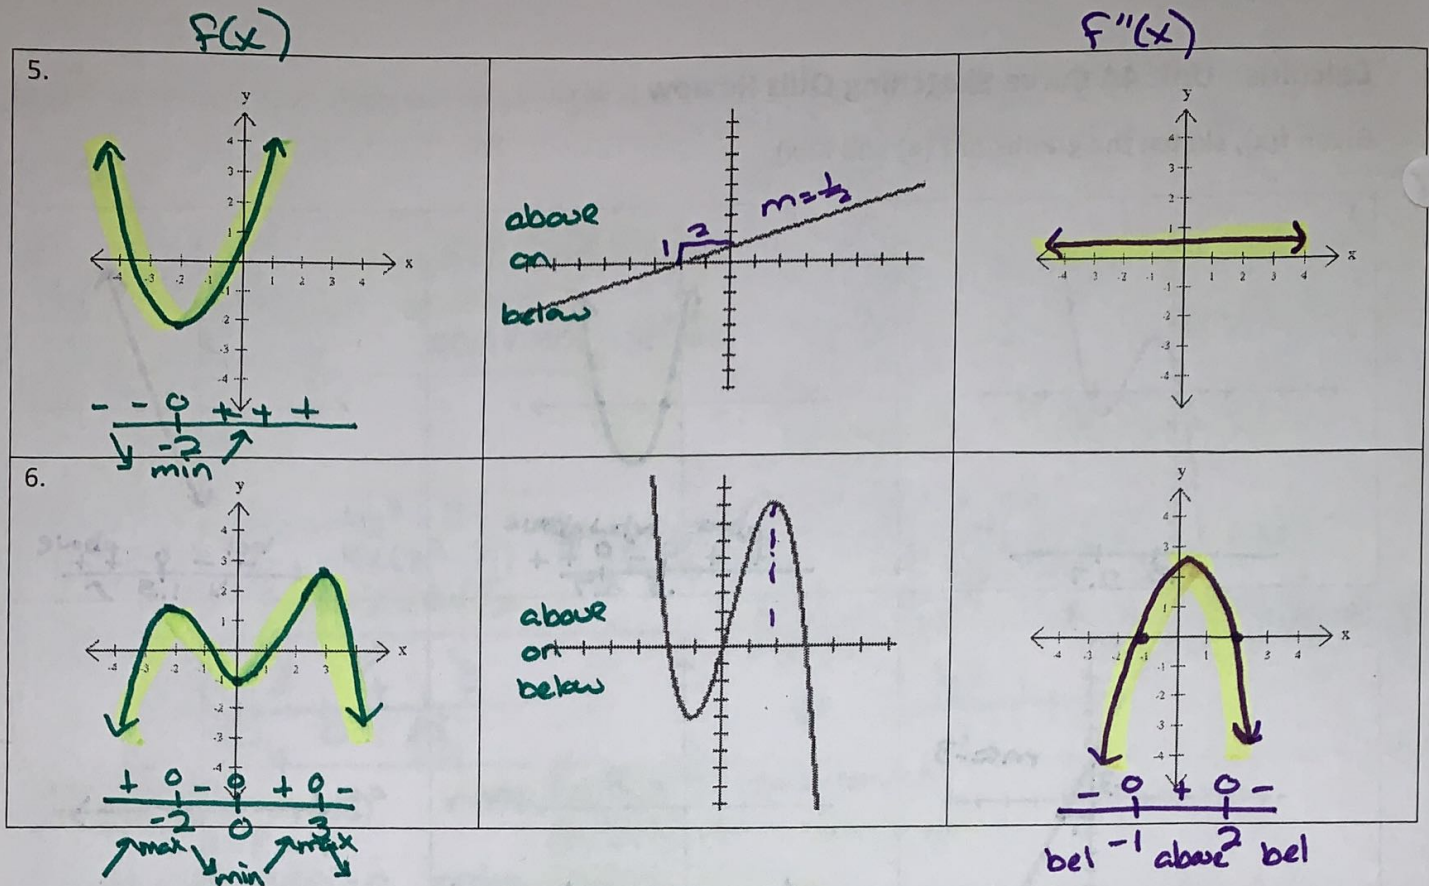 f(x)
f"(x)
5.
y
4
3
2
1
-4 -3 -2 -1 1 2 3 4 x
-1
2
-3
-4
- - 0 + + +
-2
min
above
on
below
1 2
m=1/2
y
4
3
2
1
-4 3 -2 -1 1 2 3 4 x
-1
-2
-3
-4
6.
y
4
3
2
1
-4 -3 -2 2 3 x
-2
-3
-4
+ 0 - 0 + 0 -
-2 0 3
max min max
above
on
below
y
3
1
-4 -3 -1 3 4 x
-1
-2
-3
-4
- 0 + 0 -
bel -1 above 2 bel